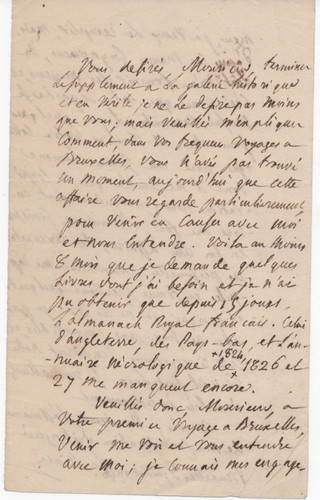 Vous desirés, Monsieur, terminer
le supplement a la galerie historique
et en verité je ne le desire pas moins
que vous; mais veuillés m'expliquer
comment, dans vos frequens voyages a
Bruxelles, vous n'aviés pas trouvé
un moment, aujourd'hui que cette
affaire vous regarde particulierement,
pour venir en causer avec moi
et nous entendre. Voila au moins
6 mois que je demande quelques
livres dont j'ai besoin et je n'ai
pu obtenir que depuis 15 jours
l'almanach Royal francais. Celui
d'angleterre, des Pays-bas, et l'an-
nuaire nécrologique de 1824, 1826 et
27 me manquent encore.
Veuillés donc, Monsieur, a
votre premier voyage a Bruxelles,
venir me voir et vous entendre
avec moi; je connais mes engage